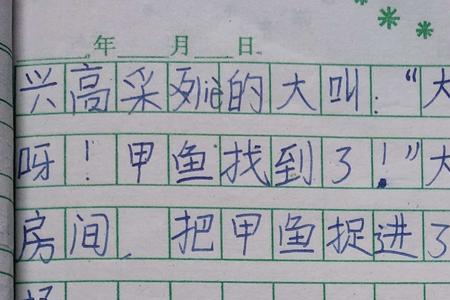 年 月 日
兴高采列lie的大叫：“大
呀！甲鱼找到了！”大
房间，把甲鱼捉进了